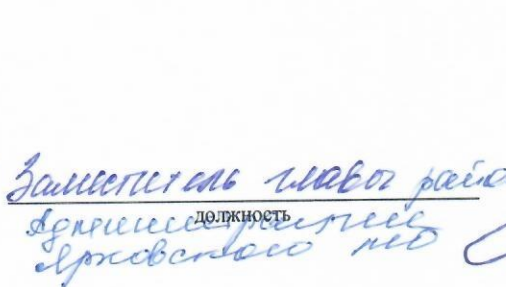 Заместитель главы райо
должность
Администрации
Ярковского МО